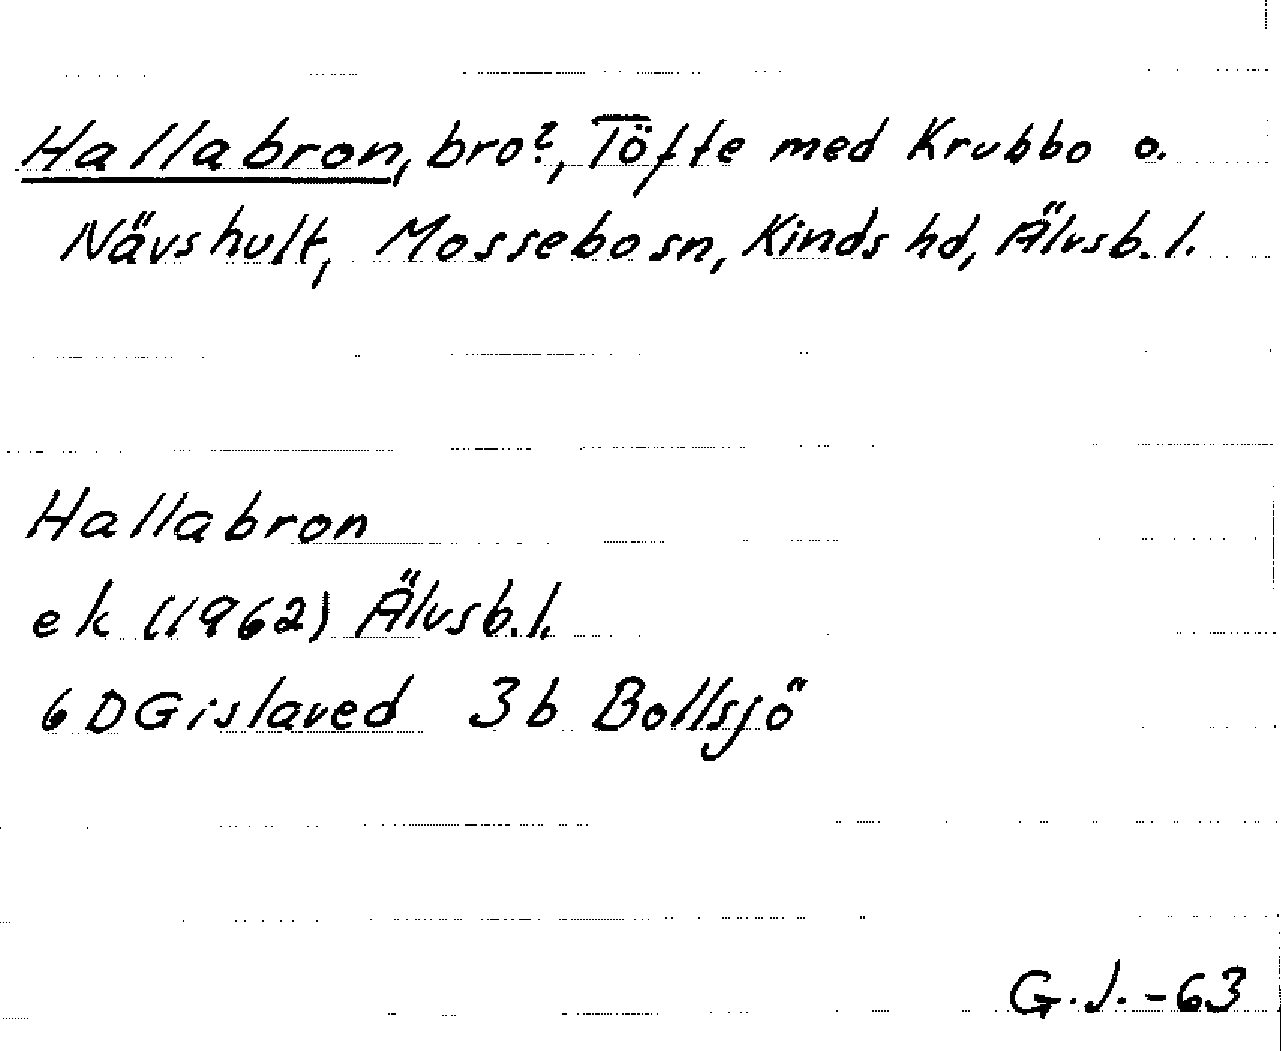 Hallabron, bro?, Töfte med Krubbo o.
Nävshult, Mossebo sn, Kinds hd, Älvsb. l.
Hallabron
ek (1962) Älvsb. l.
6 D Gislaved 3b Bollsjö
G. J. -63